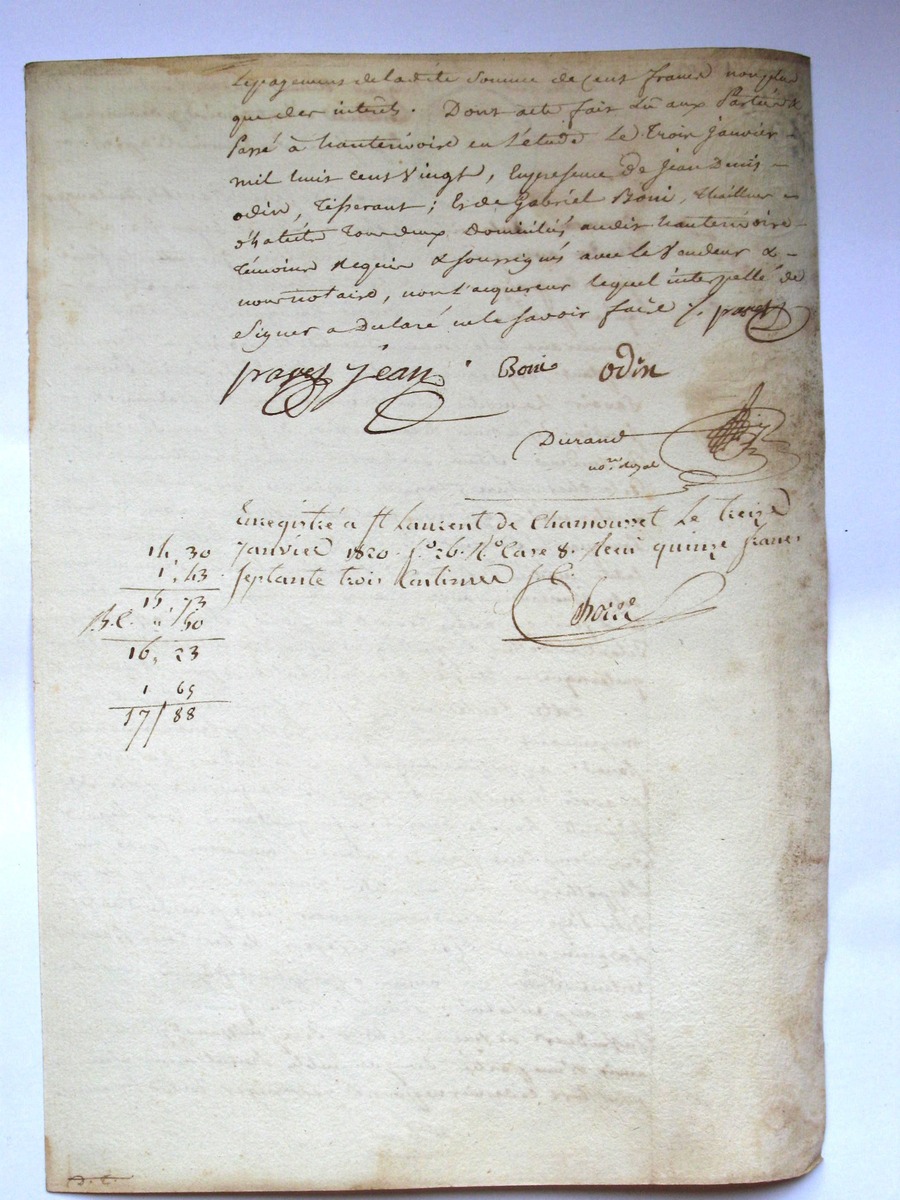 Le payement de la dite somme de cent francs non plus
que des interets. Dont acte fait Lu aux Parties &
Passé à hauterivoire en l'étude Le Trois Janvier
mil huit cent Vingt, En presence de Jean Denis
odin, Tisserant; Et de Gabriel Boni, tailleur
d'habits Tous deux Domiciliés audit hauterivoire
Témoins Requis & soussignés avec le Vendeur &
nous notaire, non l'acquereur lequel interpellé de
Signer a declaré ne le savoir faire /.
Jean Boni odin
Durand
no.re Royal
Enregistré a St Laurent de Chamousset Le treize
Janvier 1820. f.o 26. R.o Case 8. Recu quinze francs
Septante trois Centimes
14, 30
1, 43
15, 73
" 50
16, 23
1 65
17/88